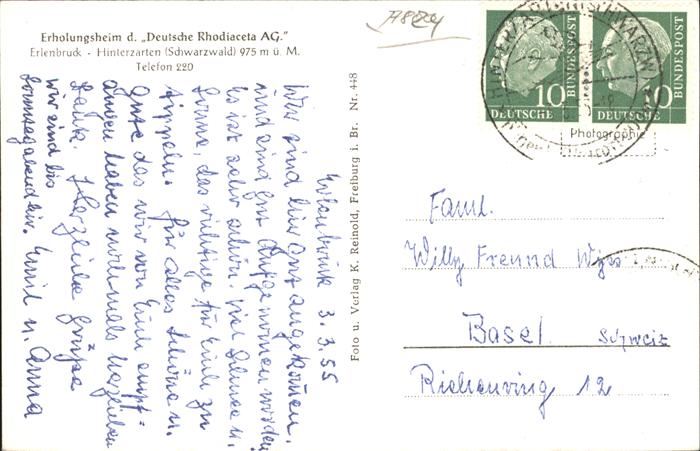 Erholungsheim d. „Deutsche Rhodiaceta AG."
Erlenbruck - Hinterzarten (Schwarzwald) 975 m ü. M.
Telefon 220
Erlenbruck 3.3.55
Wir sind hier gut angekommen.
und sind gut aufgenommen worden
Es ist sehr schön. viel Schnee u.
Sonne, das richtige für Euch zu
tippeln. Für alles Schöne u.
Gute das wir von Euch empf-
angen haben nochmals herzlichen
Dank. Herzliche Grüsse
wir sind bis
Sonntagabend hier. Emil u. Anna
Foto u. Verlag K. Reinold, Freiburg i. Br. Nr. 448
A824
10 DEUTSCHE BUNDESPOST
10 DEUTSCHE BUNDESPOST
HINTERZARTEN (SCHWARZW)
Photographie
Faml.
Willy Freund Wyss
Basel Schweiz
Riehenring 12